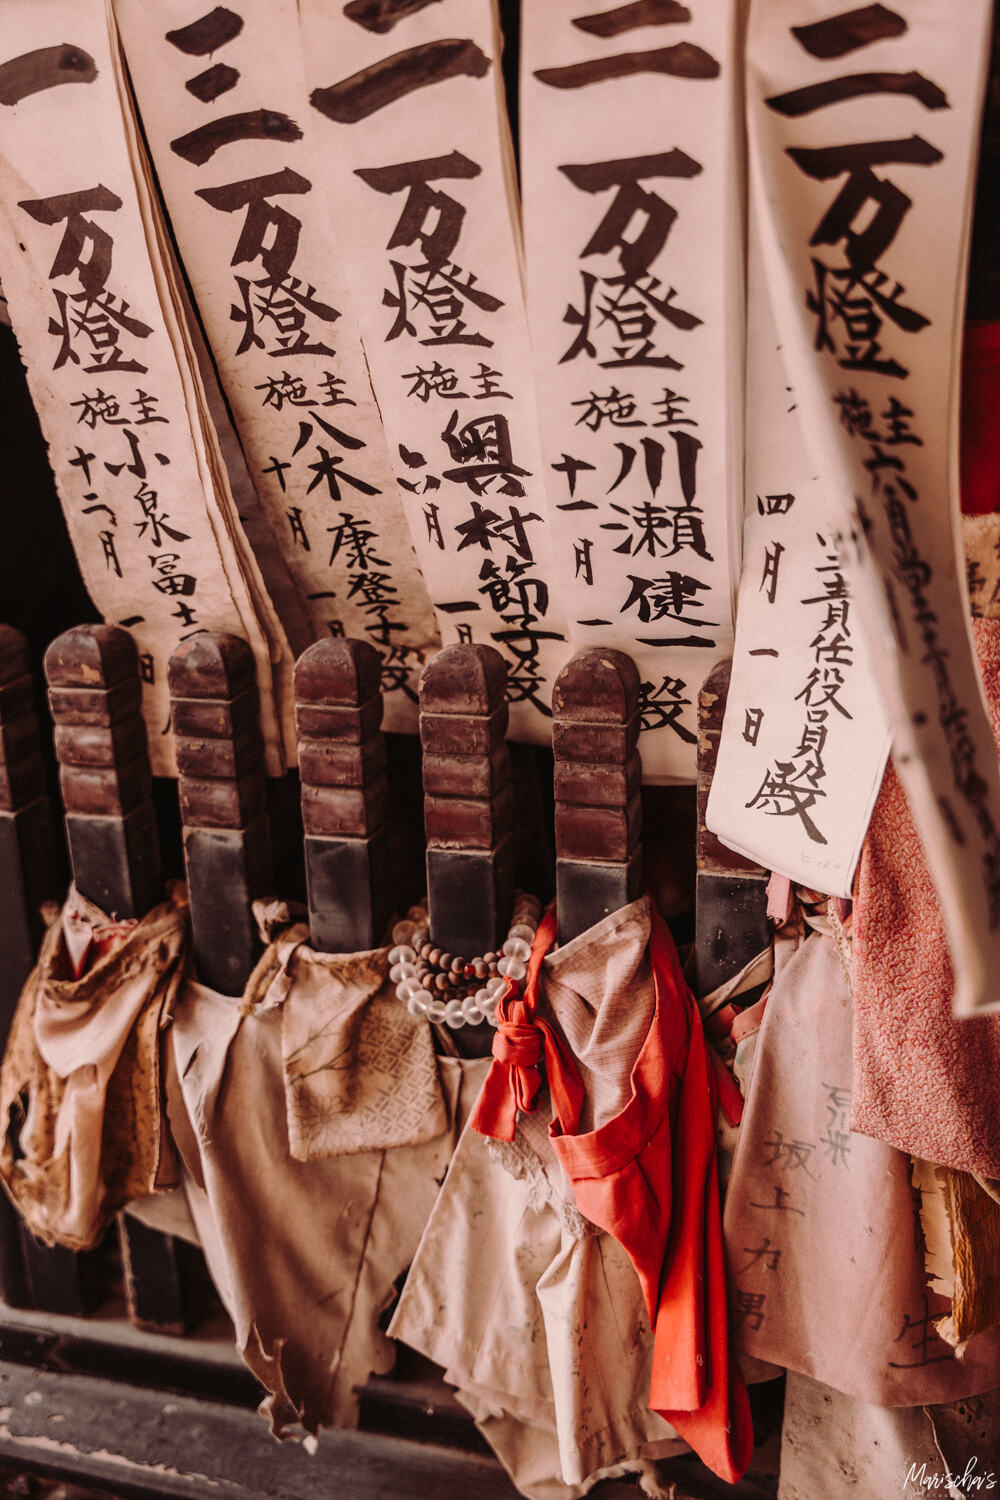 二万燈
施主
責任役員殿
四月一日
二万燈
施主
川瀬健一殿
十一月一
二万燈
施主
奥村節子殿
六月一日
三万燈
施主
八木康登子殿
十月一日
一万燈
施主
小泉冨士
十二月一日
坂上力男
生
Marischa's